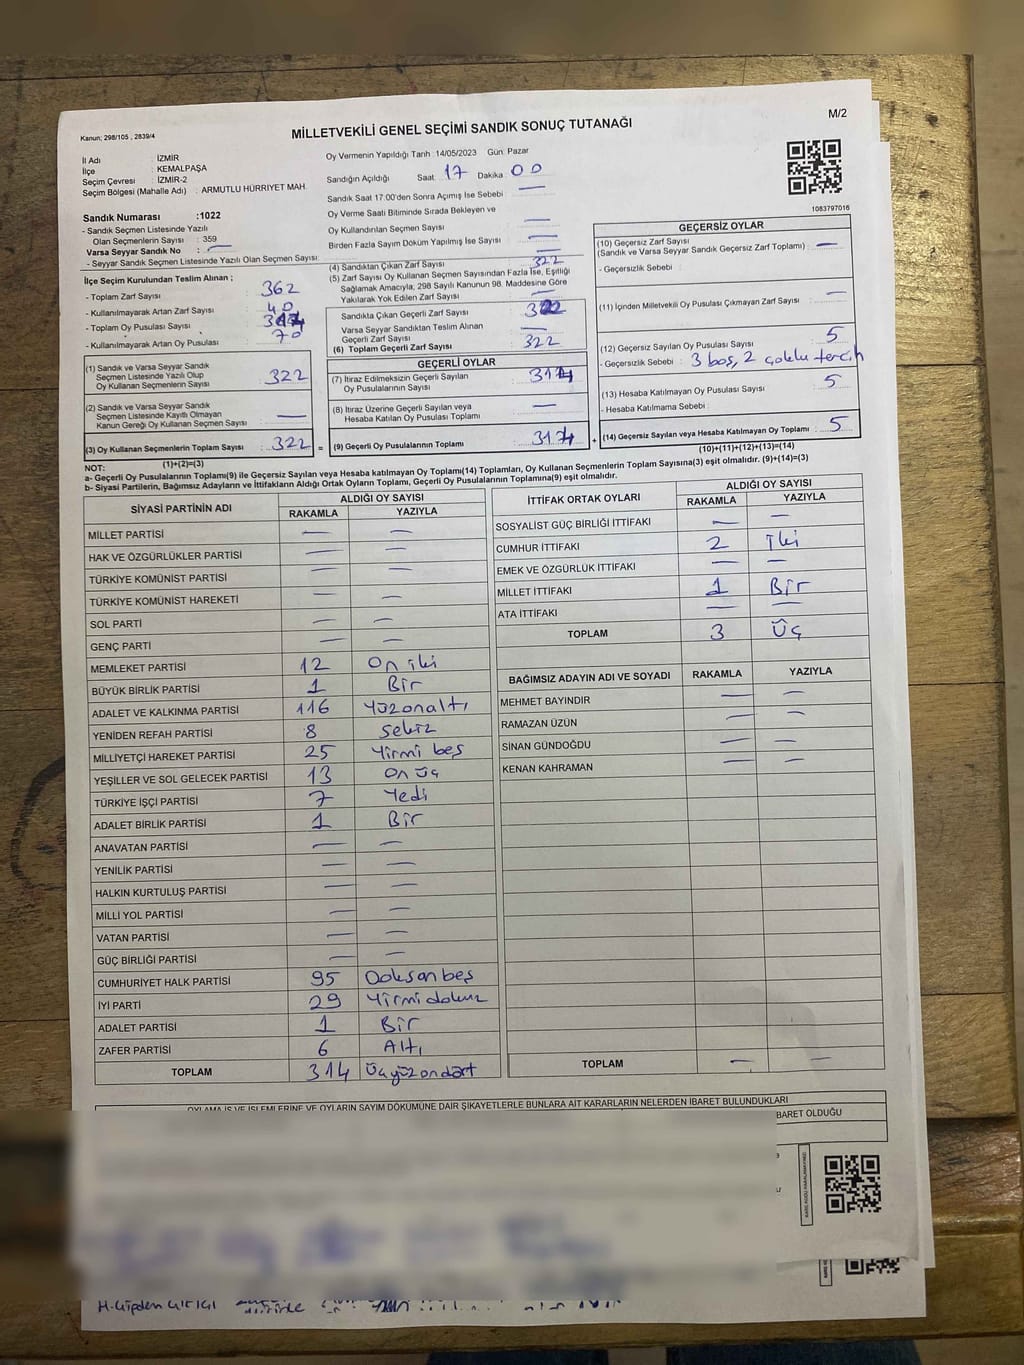 Kanun; 298/105 , 2839/4
MİLLETVEKİLİ GENEL SEÇİMİ SANDIK SONUÇ TUTANAĞI
M/2
İl Adı : İZMİR
İlçe : KEMALPAŞA
Seçim Çevresi : İZMİR-2
Seçim Bölgesi (Mahalle Adı) : ARMUTLU HÜRRİYET MAH.
Sandık Numarası :1022
- Sandık Seçmen Listesinde Yazılı
Olan Seçmenlerin Sayısı : 359
Varsa Seyyar Sandık No : —
- Seyyar Sandık Seçmen Listesinde Yazılı Olan Seçmen Sayısı:
Oy Vermenin Yapıldığı Tarih :14/05/2023 Gün: Pazar
Sandığın Açıldığı Saat 17 Dakika 00
Sandık Saat 17.00'den Sonra Açımış İse Sebebi —
Oy Verme Saati Bitiminde Sırada Bekleyen ve
Oy Kullandırılan Seçmen Sayısı —
Birden Fazla Sayım Döküm Yapılmış İse Sayısı —
1083797016
İlçe Seçim Kurulundan Teslim Alınan ;
- Toplam Zarf Sayısı 362
- Kullanılmayarak Artan Zarf Sayısı 40
- Toplam Oy Pusulası Sayısı
- Kullanılmayarak Artan Oy Pusulası 70
(1) Sandık ve Varsa Seyyar Sandık
Seçmen Listesinde Yazılı Olup
Oy Kullanan Seçmenlerin Sayısı 322
(2) Sandık ve Varsa Seyyar Sandık
Seçmen Listesinde Kayıtlı Olmayan
Kanun Gereği Oy Kullanan Seçmen Sayısı —
(3) Oy Kullanan Seçmenlerin Toplam Sayısı : 322
(1)+(2)=(3)
(4) Sandıktan Çıkan Zarf Sayısı 322
(5) Zarf Sayısı Oy Kullanan Seçmen Sayısından Fazla İse, Eşitliği
Sağlamak Amacıyla; 298 Sayılı Kanunun 98. Maddesine Göre
Yakılarak Yok Edilen Zarf Sayısı —
Sandıkta Çıkan Geçerli Zarf Sayısı 322
Varsa Seyyar Sandıktan Teslim Alınan
Geçerli Zarf Sayısı —
(6) Toplam Geçerli Zarf Sayısı 322
GEÇERLİ OYLAR
(7) İtiraz Edilmeksizin Geçerli Sayılan
Oy Pusulalarının Sayısı 314
(8) İtiraz Üzerine Geçerli Sayılan veya
Hesaba Katılan Oy Pusulası Toplamı —
= (9) Geçerli Oy Pusulalarının Toplamı 314
GEÇERSİZ OYLAR
(10) Geçersiz Zarf Sayısı
(Sandık ve Varsa Seyyar Sandık Geçersiz Zarf Toplamı) : —
- Geçersizlik Sebebi :
(11) İçinden Milletvekili Oy Pusulası Çıkmayan Zarf Sayısı —
(12) Geçersiz Sayılan Oy Pusulası Sayısı 5
- Geçersizlik Sebebi : 3 boş, 2 çoklu tercih
(13) Hesaba Katılmayan Oy Pusulası Sayısı 5
- Hesaba Katılmama Sebebi :
+ (14) Geçersiz Sayılan veya Hesaba Katılmayan Oy Toplamı : 5
(10)+(11)+(12)+(13)=(14)
NOT:
a- Geçerli Oy Pusulalarının Toplamı(9) ile Geçersiz Sayılan veya Hesaba katılmayan Oy Toplamı(14) Toplamları, Oy Kullanan Seçmenlerin Toplam Sayısına(3) eşit olmalıdır. (9)+(14)=(3)
b- Siyasi Partilerin, Bağımsız Adayların ve İttifakların Aldığı Ortak Oyların Toplamı, Geçerli Oy Pusulalarının Toplamına(9) eşit olmalıdır.
SİYASİ PARTİNİN ADI ALDIĞI OY SAYISI
RAKAMLA YAZIYLA
MİLLET PARTİSİ — —
HAK VE ÖZGÜRLÜKLER PARTİSİ — —
TÜRKİYE KOMÜNİST PARTİSİ — —
TÜRKİYE KOMÜNİST HAREKETİ — —
SOL PARTİ — —
GENÇ PARTİ — —
MEMLEKET PARTİSİ 12 On iki
BÜYÜK BİRLİK PARTİSİ 1 Bir
ADALET VE KALKINMA PARTİSİ 116 Yüzonaltı
YENİDEN REFAH PARTİSİ 8 Sekiz
MİLLİYETÇİ HAREKET PARTİSİ 25 Yirmi beş
YEŞİLLER VE SOL GELECEK PARTİSİ 13 On üç
TÜRKİYE İŞÇİ PARTİSİ 7 Yedi
ADALET BİRLİK PARTİSİ 1 Bir
ANAVATAN PARTİSİ — —
YENİLİK PARTİSİ — —
HALKIN KURTULUŞ PARTİSİ — —
MİLLİ YOL PARTİSİ — —
VATAN PARTİSİ — —
GÜÇ BİRLİĞİ PARTİSİ — —
CUMHURİYET HALK PARTİSİ 95 Doksanbeş
İYİ PARTİ 29 Yirmidokuz
ADALET PARTİSİ 1 Bir
ZAFER PARTİSİ 6 Altı
TOPLAM 314 Üçyüzondört
İTTİFAK ORTAK OYLARI ALDIĞI OY SAYISI
RAKAMLA YAZIYLA
SOSYALİST GÜÇ BİRLİĞİ İTTİFAKI — —
CUMHUR İTTİFAKI 2 İki
EMEK VE ÖZGÜRLÜK İTTİFAKI — —
MİLLET İTTİFAKI 1 Bir
ATA İTTİFAKI — —
TOPLAM 3 Üç
BAĞIMSIZ ADAYIN ADI VE SOYADI RAKAMLA YAZIYLA
MEHMET BAYINDIR — —
RAMAZAN ÜZÜN — —
SİNAN GÜNDOĞDU — —
KENAN KAHRAMAN — —
TOPLAM — —
OYLAMA İŞ VE İŞLEMLERİNE VE OYLARIN SAYIM DÖKÜMÜNE DAİR ŞİKAYETLERLE BUNLARA AİT KARARLARIN NELERDEN İBARET BULUNDUKLARI
BARET OLDUĞU